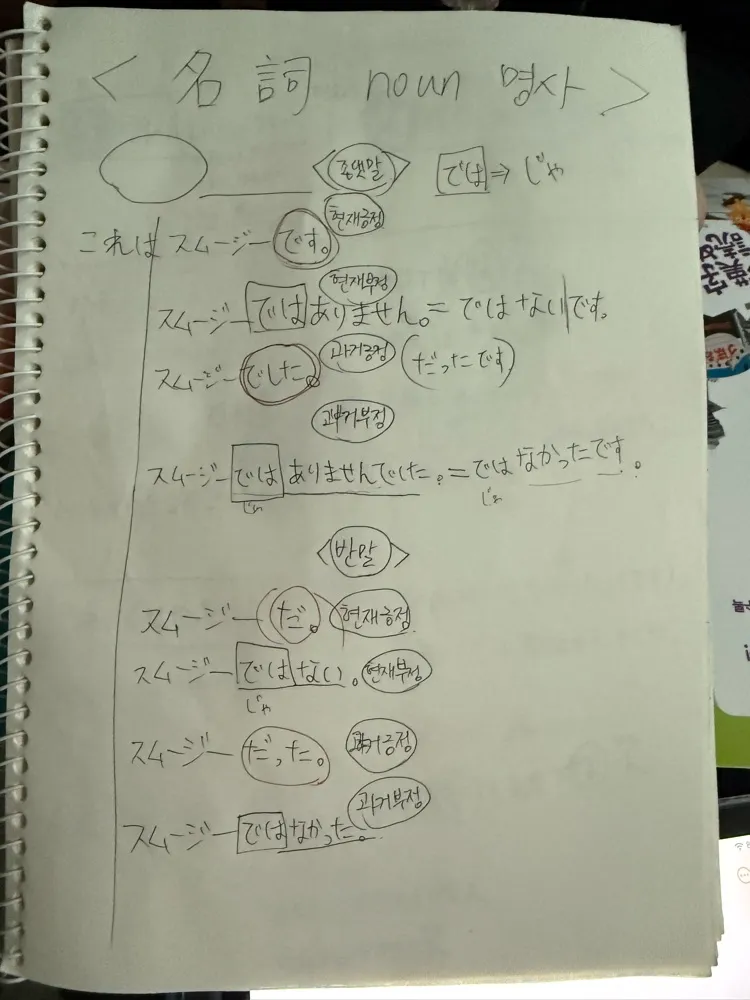 < 名詞 noun 명사 >
<존댓말> では⇒じゃ
현재긍정
これは スムージーです。
현재부정
スムージーではありません。= ではないです。
スムージーでした。 과거긍정 (だったです)
과거부정
スムージーではありませんでした。= ではなかったです。
じゃ じゃ
<반말>
スムージー(だ。) 현재긍정
スムージーではない。 현재부정
じゃ
スムージーだった。 과거긍정
과거부정
スムージーではなかった。